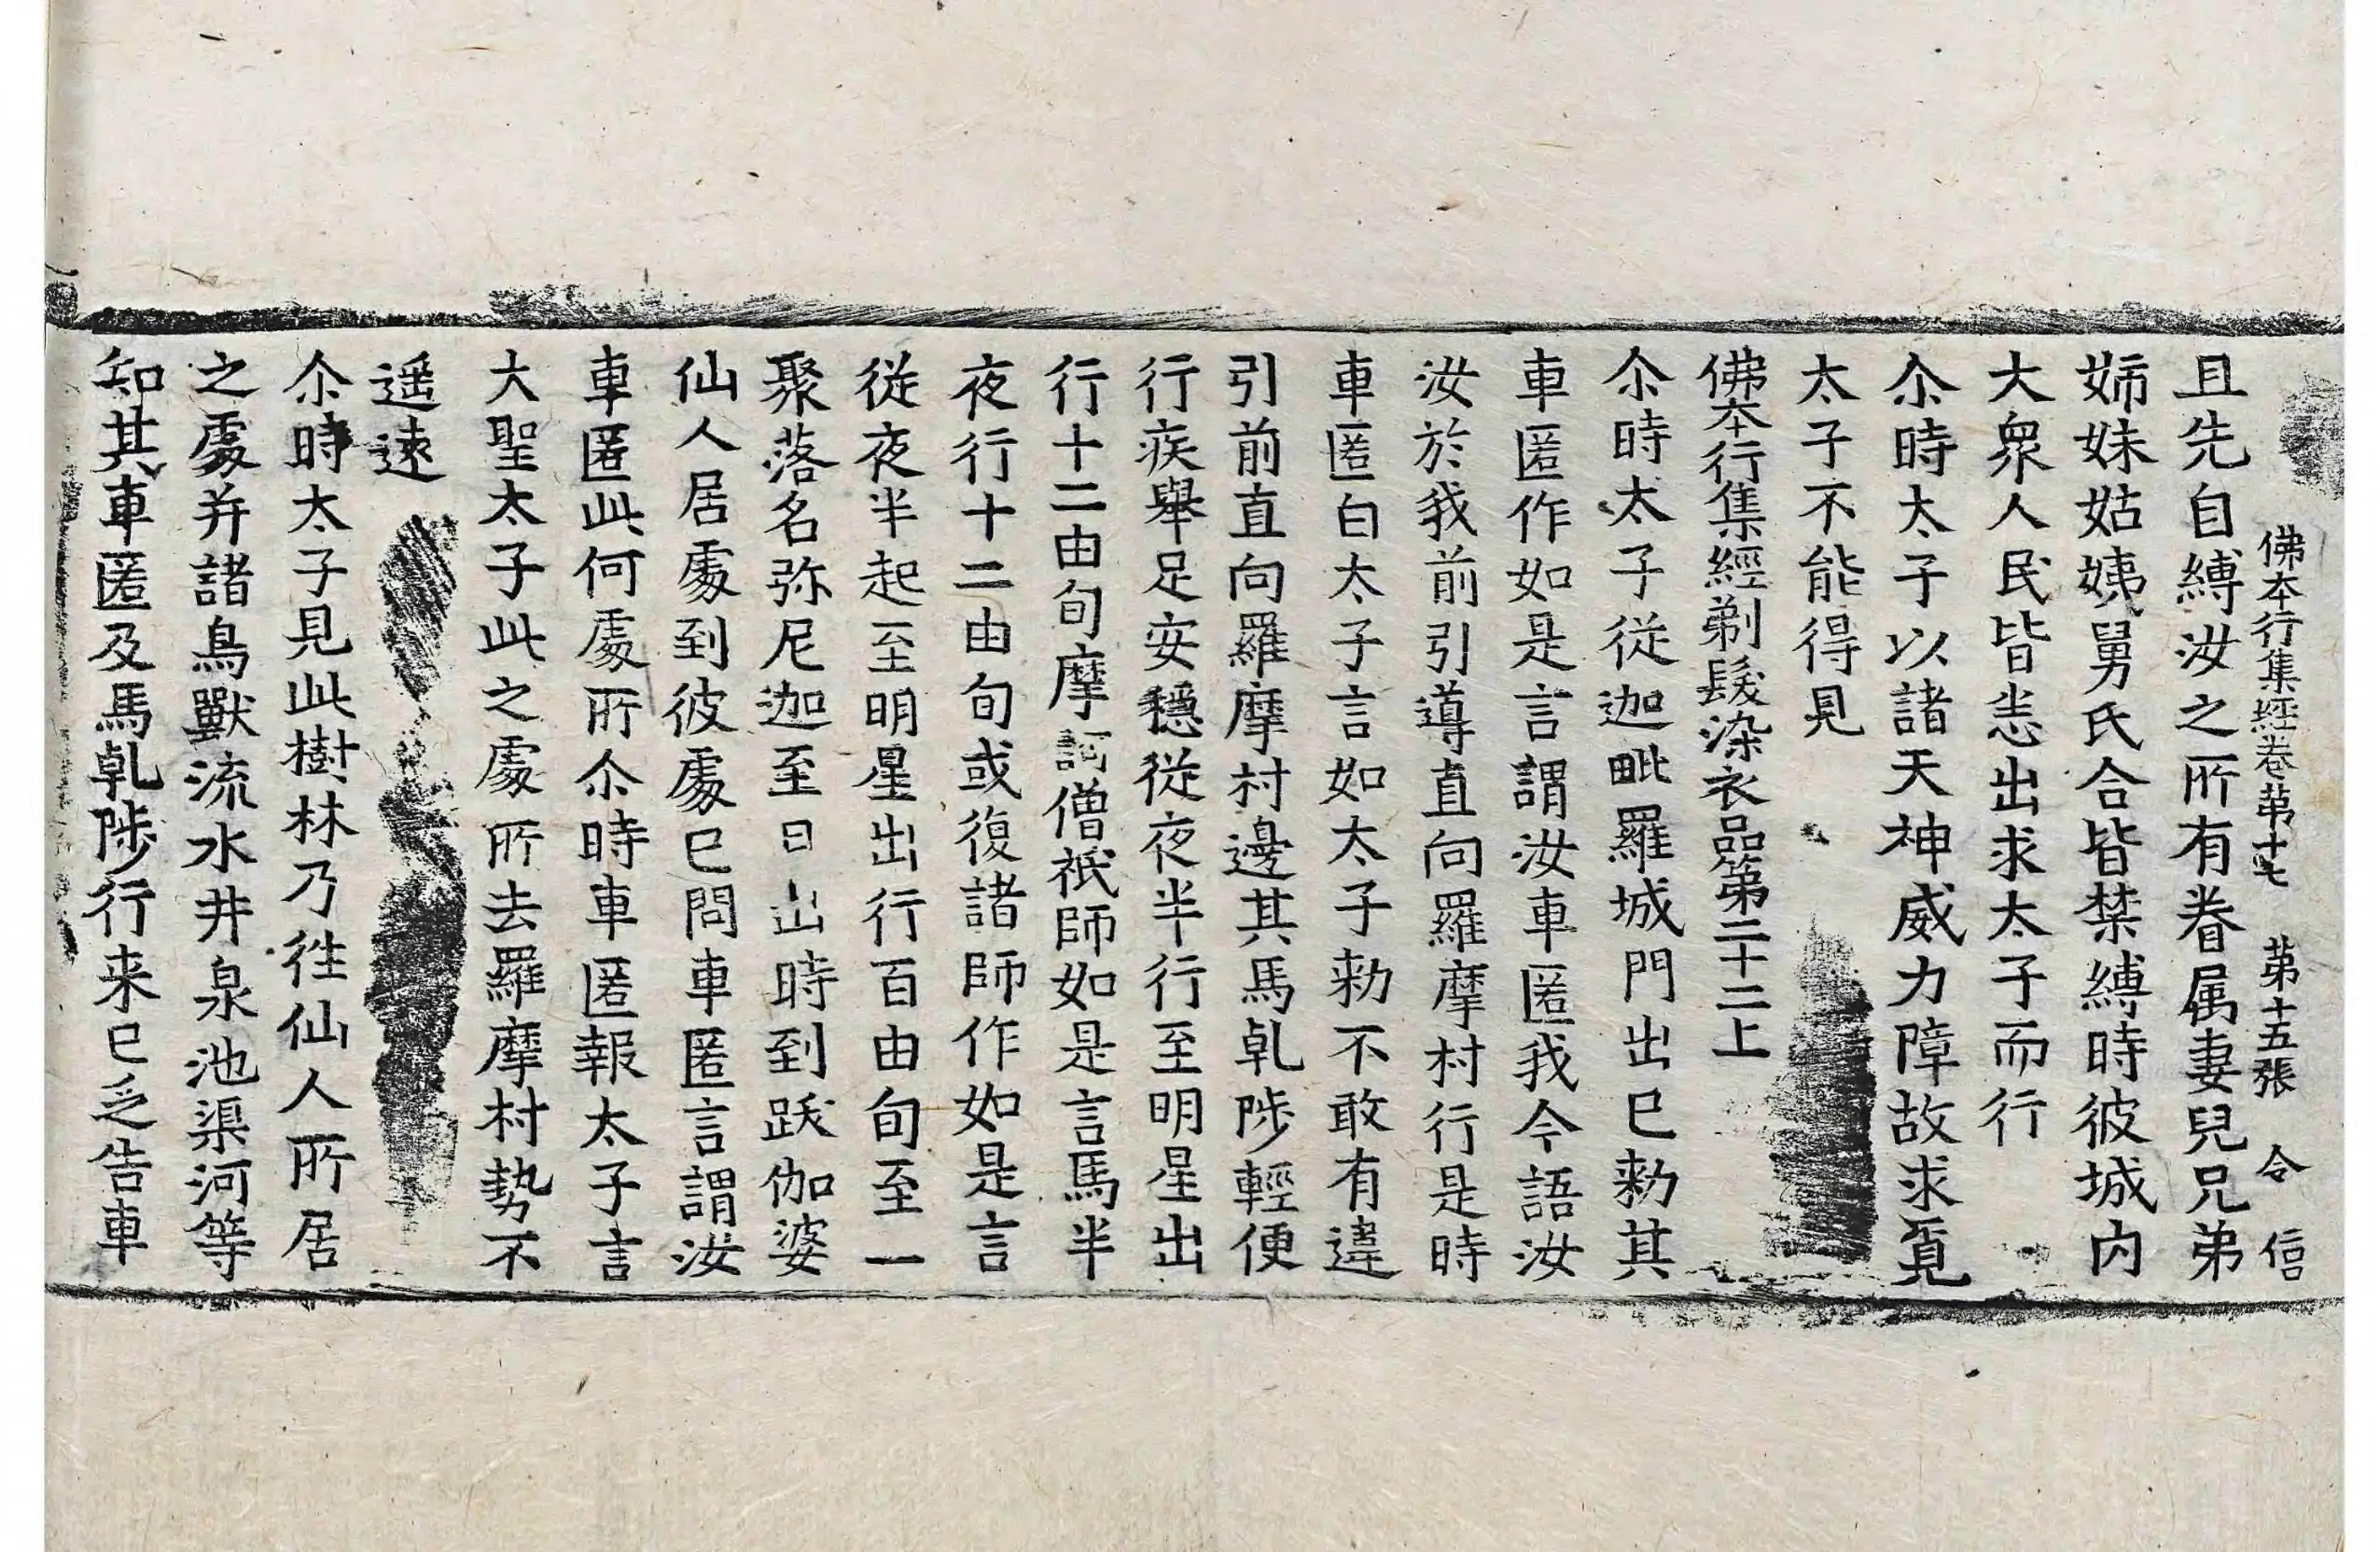 佛本行集經卷第十七 第十五張 令 信
且先自縛汝之所有眷属妻兒兄弟
姊妹姑姨舅氏合皆禁縛時彼城内
大衆人民皆悉出求太子而行
尒時太子以諸天神威力障故求覓
太子不能得見
佛本行集經剃髮染衣品第二十二上
尒時太子從迦毗羅城門出已勑其
車匿作如是言謂汝車匿我今語汝
汝於我前引導直向羅摩村行是時
車匿白太子言如太子勑不敢有違
引前直向羅摩村邊其馬乹陟輕便
行疾舉足安穩從夜半行至明星出
行十二由旬摩訶僧祇師如是言馬半
夜行十二由旬或復諸師作如是言
從夜半起至明星出行百由旬至一
聚落名弥尼迦至日出時到跋伽婆
仙人居處到彼處已問車匿言謂汝
車匿此何處所尒時車匿報太子言
大聖太子此之處所去羅摩村勢不
遥遠
尒時太子見此樹林乃徃仙人所居
之處并諸鳥獸流水井泉池渠河等
知其車匿及馬乹陟行来已乏告車